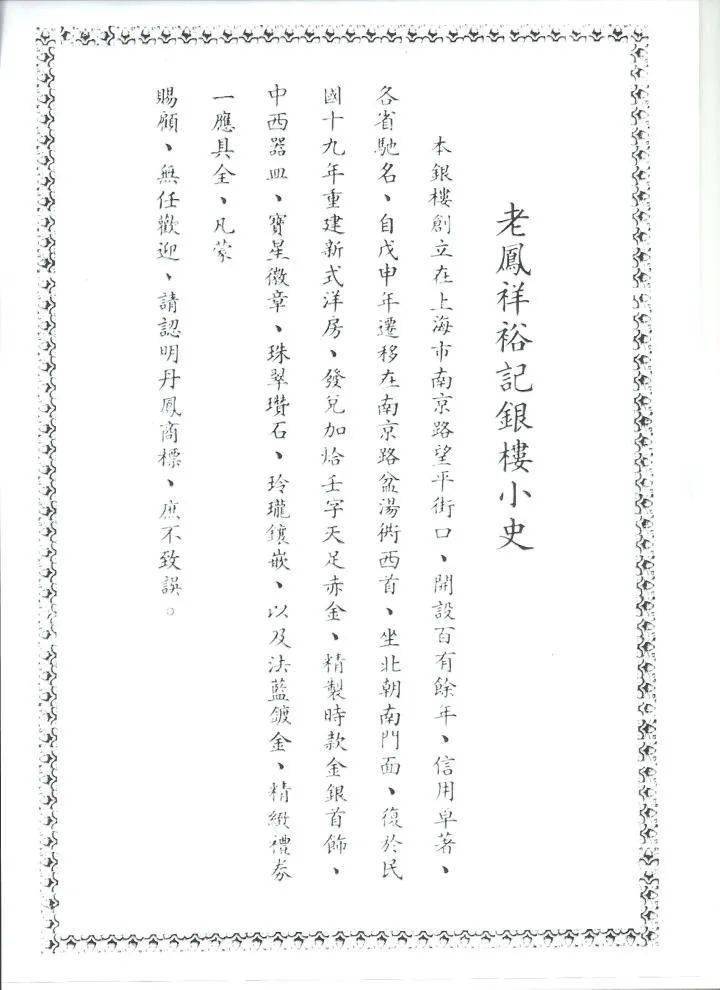 老鳳祥裕記銀樓小史
本銀樓創立在上海市南京路望平街口、開設百有餘年、信用卓著、
各省馳名、自戊申年遷移在南京路盆湯衖西首、坐北朝南門面、復於民
國十九年重建新式洋房、發兌加烚壬字天足赤金、精製時款金銀首飾、
中西器皿、寶星徽章、珠翠瓚石、玲瓏鑲嵌、以及法藍鍍金、精緻禮券
一應具全、凡蒙
賜顧、無任歡迎、請認明丹鳳商標、庶不致誤。